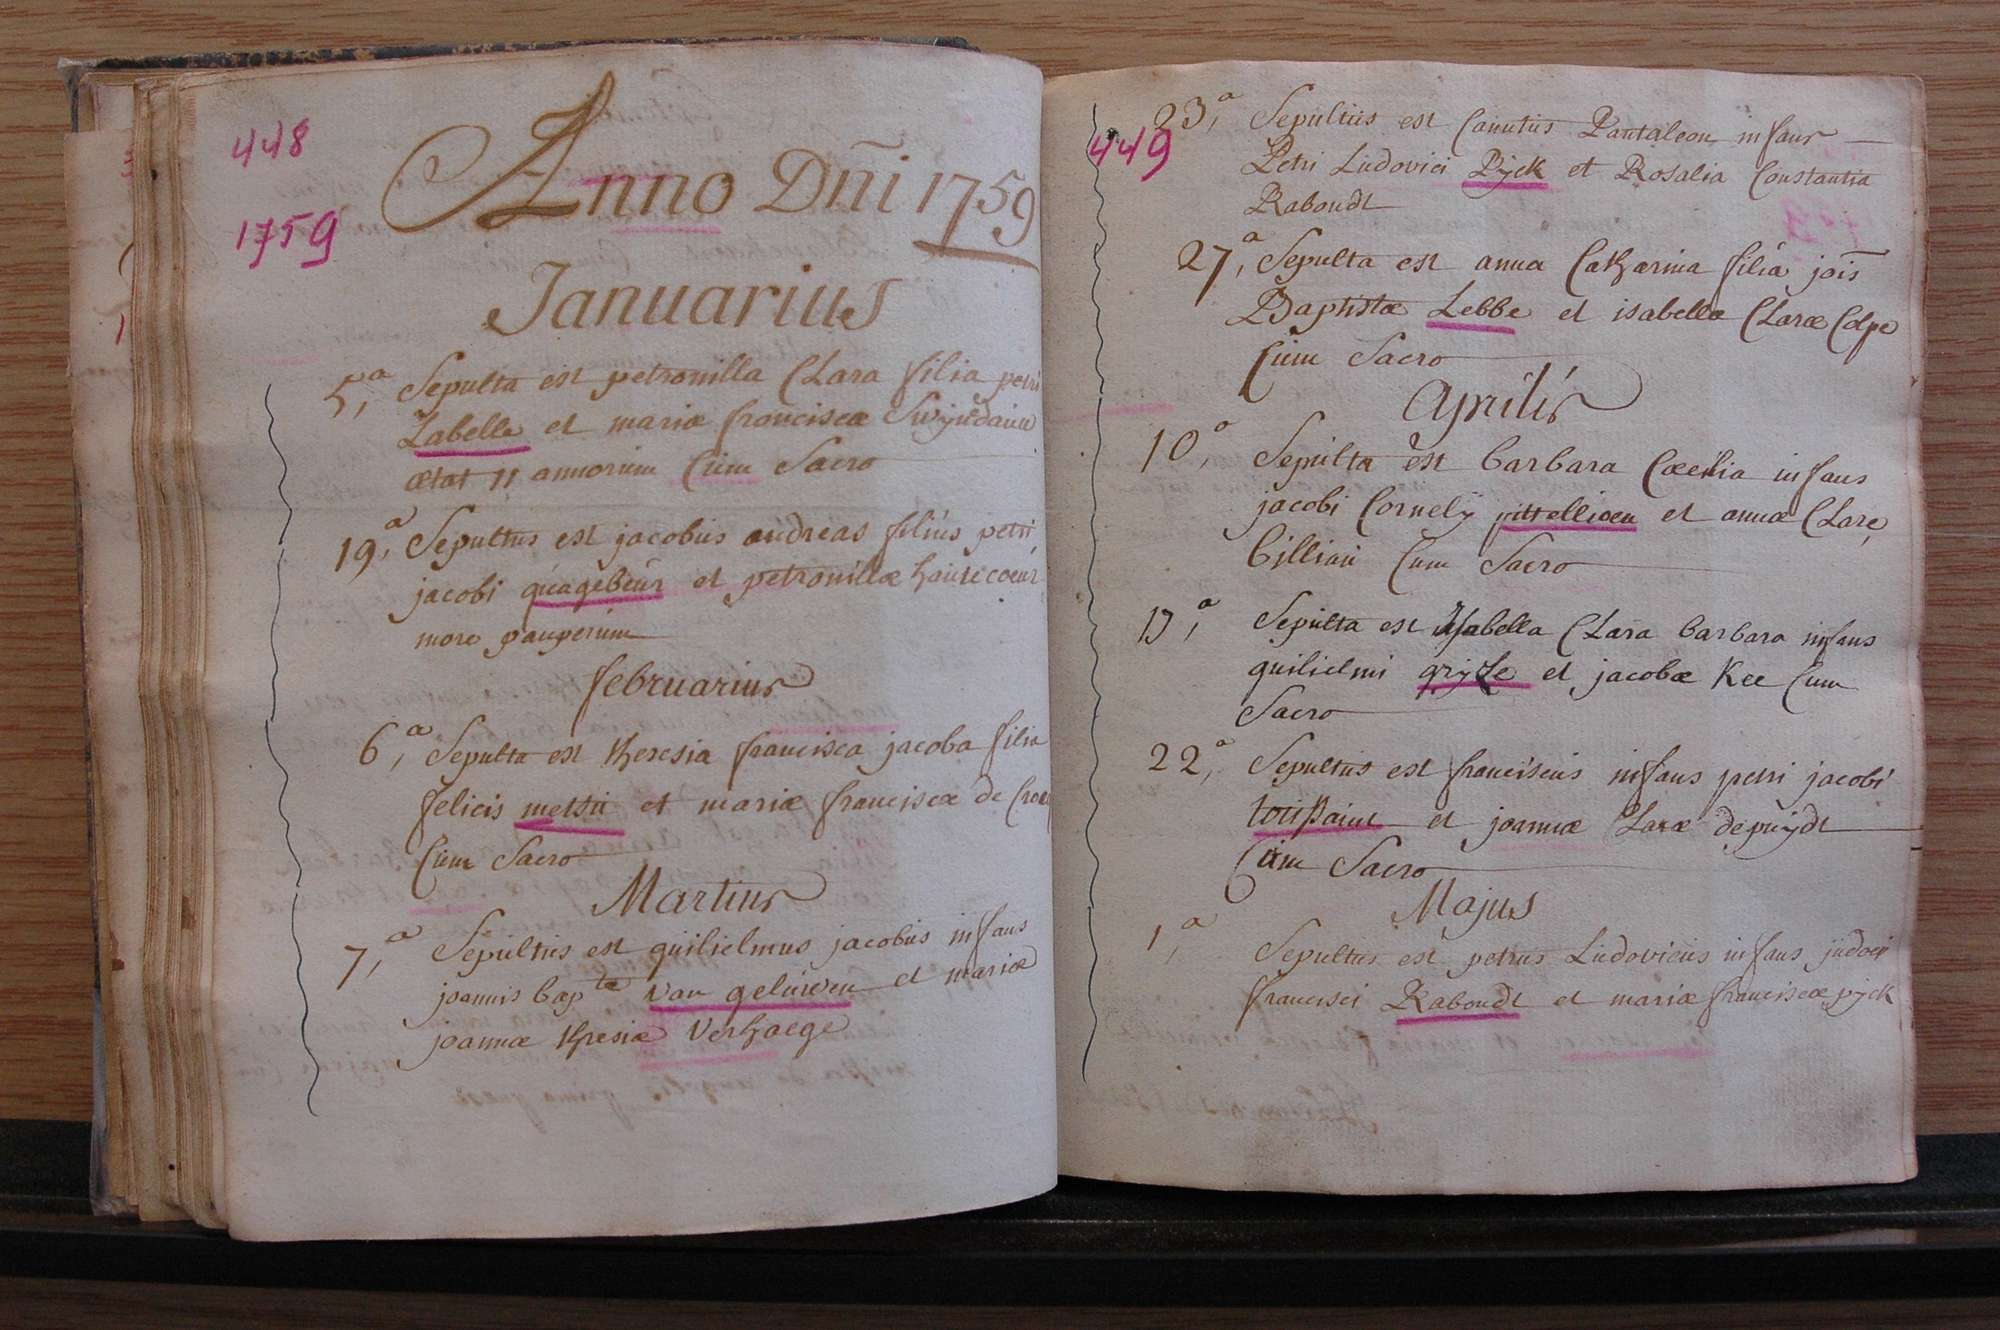 448
1759
Anno Dñi 1759
Januarius
5,a Sepulta est petronilla Clara filia petri
Labelle et mariæ franciscæ
ætat 11 annorum Cum Sacro
19,a Sepultus est jacobus andreas filius petri
jacobi quagebeur et petronillæ hautecoeur
more pauperum
februarius
6,a Sepulta est theresia francisca jacoba filia
felicis metsu et mariæ franciscæ de
Cum Sacro
Martius
7,a Sepultus est guilielmus jacobus infans
joannis bapta van geluwen et mariæ
joannæ thresiæ Verhaege
449
23,a Sepultus est Canutus Pantaleon infans
Petri Ludovici Pyck et Rosalia Constantia
Raboudt
27,a Sepulta est anna Catharina filia jois
Baptistæ Lebbe et isabellæ Claræ Colpe
Cum Sacro
Aprilis
10,a Sepulta est barbara Cæcilia infans
jacobi Cornely pittellioen et annæ Claræ
billiau Cum Sacro
17,a Sepulta est ysabella Clara barbara infans
guilielmi gryse et jacobæ Kee Cum
Sacro
22,a Sepultus est franciscus infans petri jacobi
toussaint et joannæ Claræ depuydt
Cum Sacro
Majus
1,a Sepultus est petrus Ludovicus infans judoci
francisci Raboudt et mariæ franciscæ pyck